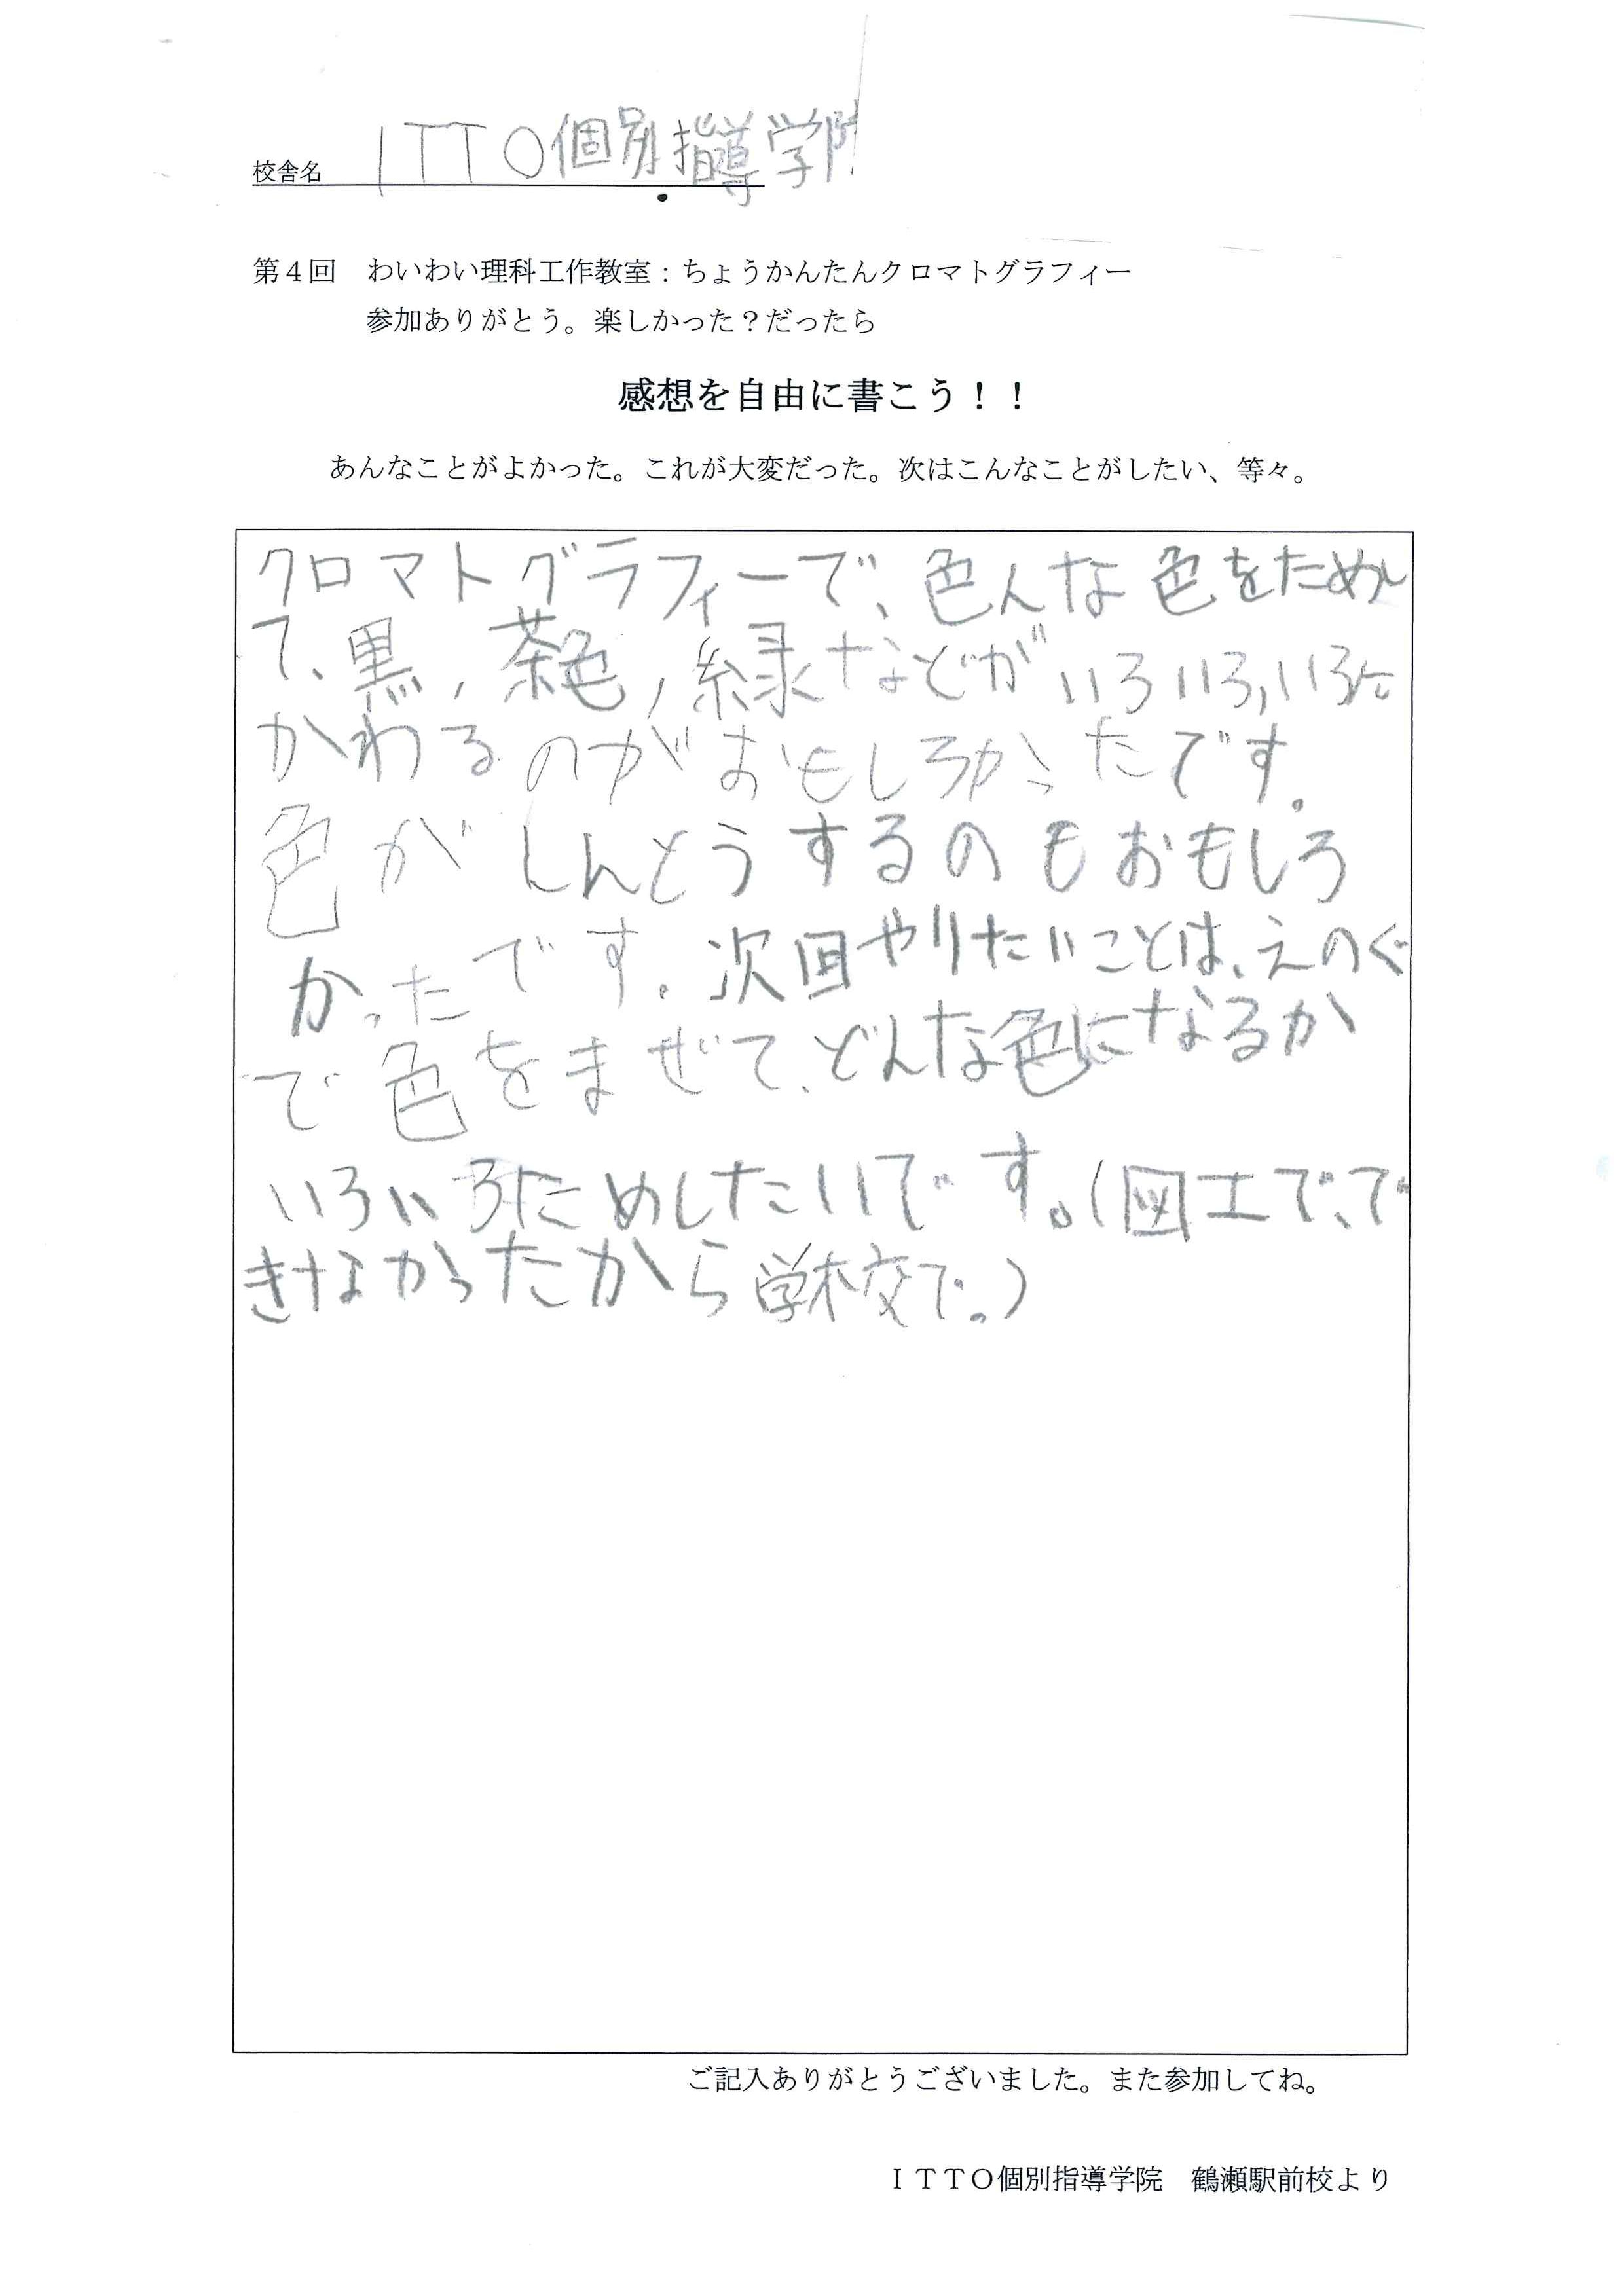 校舎名 ITTO個別指導学院
第４回 わいわい理科工作教室：ちょうかんたんクロマトグラフィー
参加ありがとう。楽しかった？だったら
感想を自由に書こう！！
あんなことがよかった。これが大変だった。次はこんなことがしたい、等々。
クロマトグラフィーで、色んな色をためし
て、黒，茶色，緑などがいろいろ，いろに
かわるのがおもしろかったです。
色がしんとうするのもおもしろ
かったです。次回やりたいことは、えのぐ
で色をまぜて、どんな色になるか
いろいろためしたいです。(図工で、で
きなかったから学校で。)
ご記入ありがとうございました。また参加してね。
ＩＴＴＯ個別指導学院 鶴瀬駅前校より